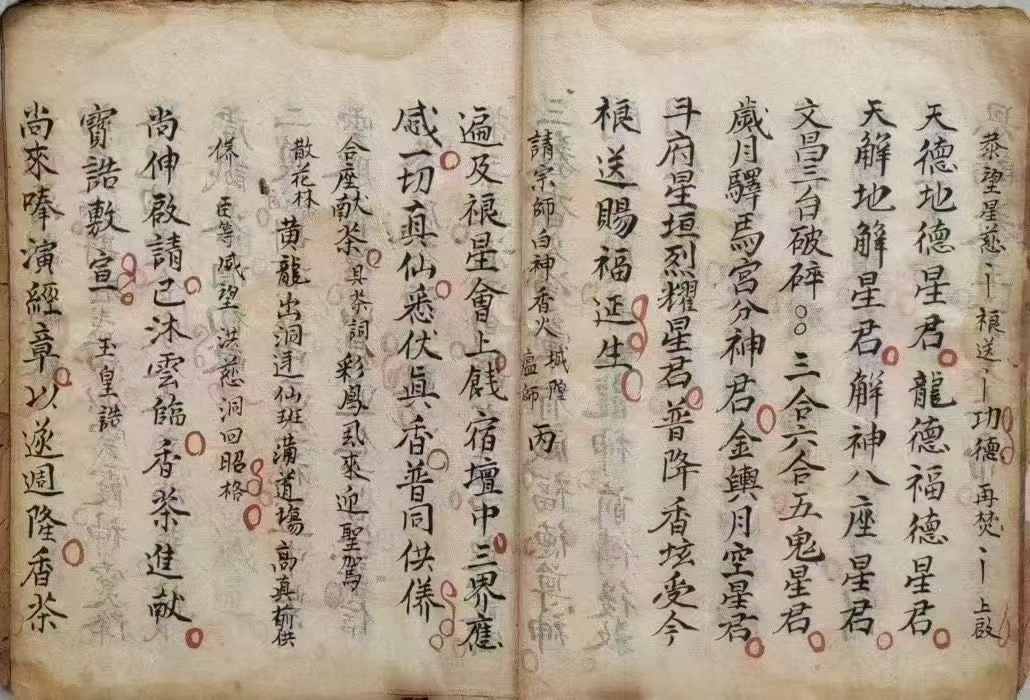 恭望星慈丶丨禳送丶丨功德再焚丶丨上啟
天德地德星君龍德福德星君
天解地解星君解神八座星君
文昌三台破碎〇〇三合六合五鬼星君
歲月驛馬宮分神君金輿月空星君
斗府星垣烈耀星君普降香坛受今
禳送賜福延生
請宗師白神香火城隍瘟師丙
遍及禳星會上餞宿壇中三界應
感一切真仙悉伏真香普同供养
合座献茶具茶詞彩鳳飛來迎聖駕
散花林黄龍出洞迓仙班满道塲高真前供
养臣等咸望洪慈洞回昭格
尚伸啟請已沐雲臨香茶進献
寳誥敷宣玉皇誥
尚來唪演經章以遂週隆香茶